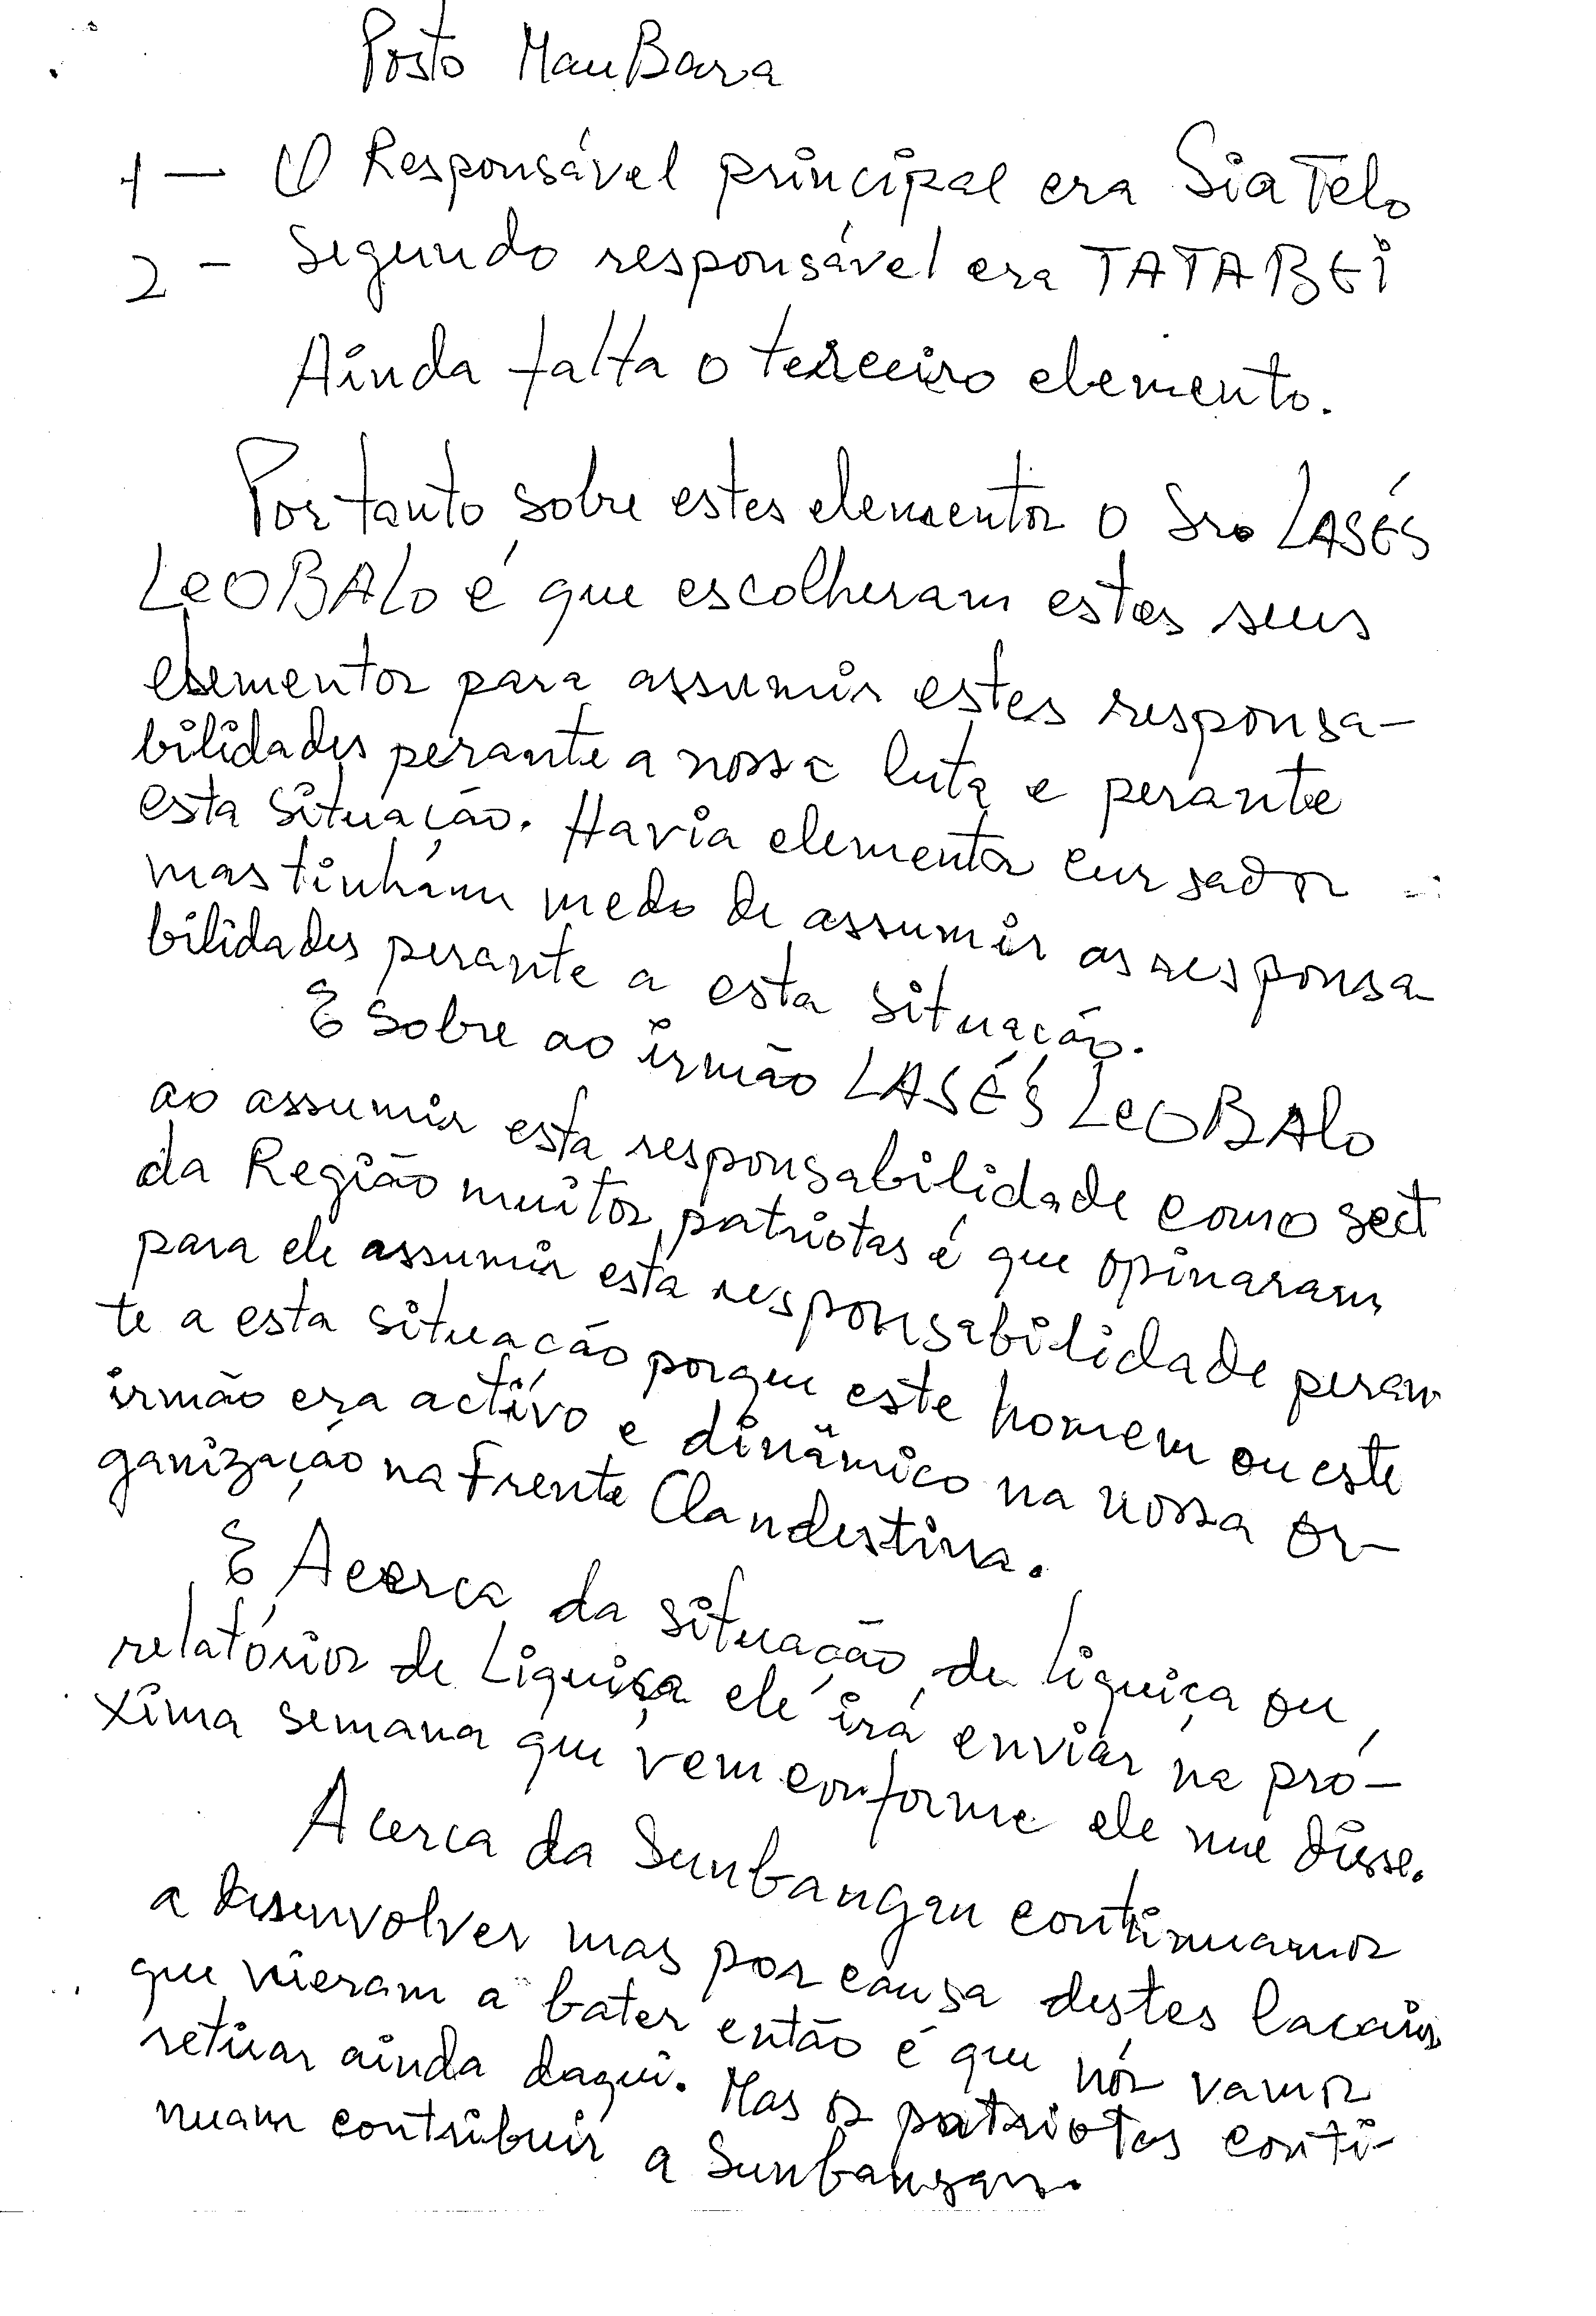 Posto MauBara
1 — O Responsável principal era Sia Telo
2 - Segundo responsável era TATABEI
Ainda falta o terceiro elemento.
Portanto sobre estes elementos o Sro LASÉS
LEOBALO é que escolheram estes seus
elementos para assumir estes responsa-
bilidades perante a nossa luta e perante
esta situação. Havia elementos cursados
mas tinham medo de assumir as responsa
bilidades perante a esta situação.
E sobre ao irmão LASÉS LEOBALO
ao assumir esta responsabilidade como sect
da Região muitos patriotas é que opinaram
para ele assumir esta responsabilidade peran
te a esta situação porque este homem ou este
irmão era activo e dinâmico na nossa or-
ganização na Frente Clandestina.
E Acerca da situação de liquiça ou
relatórios de Liquiça ele irá enviar na pró-
xima semana que vem conforme ele me disse.
Acerca da Sunbangan continuamos
a desenvolver mas por causa destes lacaios
que vieram a bater então é que nós vamos
retirar ainda daqui. Mas os patriotas conti-
nuam contribuir a Sunbangan.